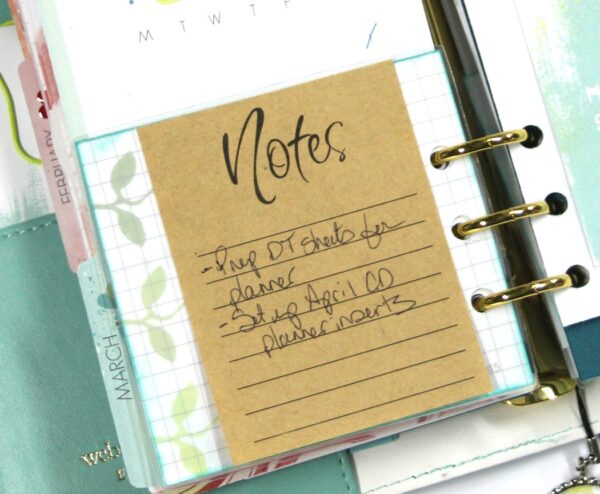 M T W T F
Notes
- Prep DT sheets for
planner
- Set up April CD
planner inserts
FEBRUARY
MARCH
web